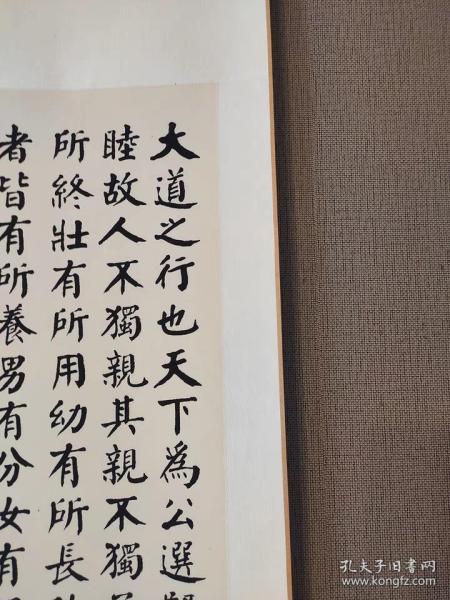 大道之行也天下為公選
睦故人不獨親其親不獨
所終壯有所用幼有所長
者皆有所養男有分女有
孔夫子旧书网
www.kongfz.com